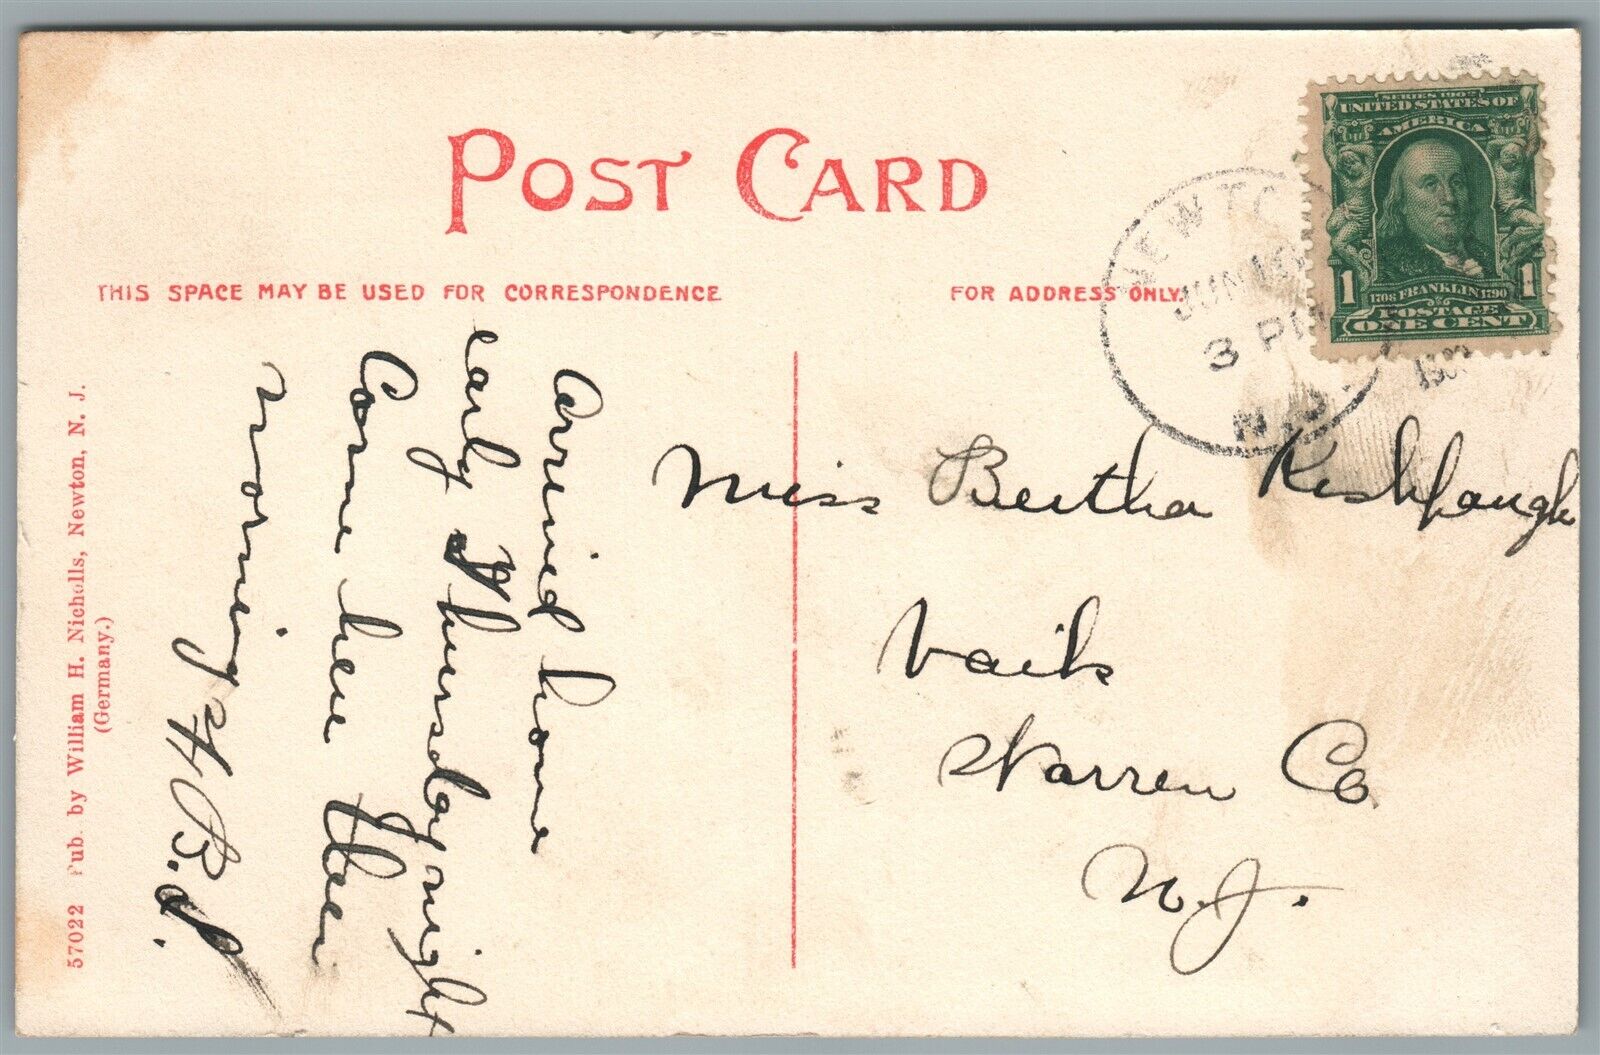 POST CARD
THIS SPACE MAY BE USED FOR CORRESPONDENCE
FOR ADDRESS ONLY.
SERIES 1902
UNITED STATES OF
AMERICA
1 1
1706 FRANKLIN 1790
POSTAGE
ONE CENT
NEWTO
JUN 10
3 PM
N.J.
Arrived home
early Thursday night
Come here
morning H. B. S.
Miss Bertha Kishpaugh
Vails
Warren Co
N. J.
57022 Pub. by William H. Nicholls, Newton, N. J.
(Germany.)